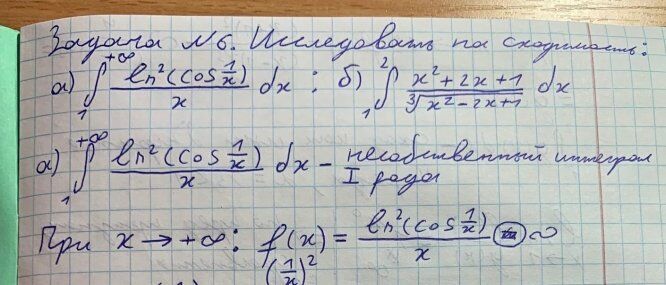 Задача №6. Исследовать на сходимость:
а) ∫₁^{+∞} ln²(cos 1/x)/x dx ; б) ∫₁² (x²+2x+1)/∛(x²-2x+1) dx
а) ∫₁^{+∞} ln²(cos 1/x)/x dx – несобственный интеграл I рода
При x → +∞: f(x) = ln²(cos 1/x)/x ∼
(1/x)²